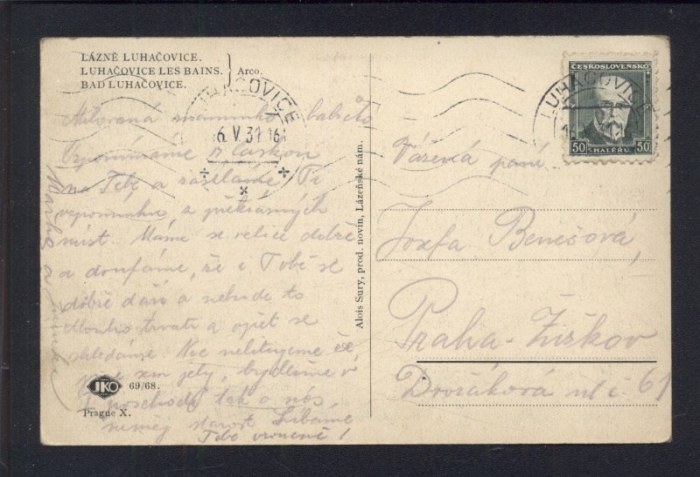 LÁZNĚ LUHAČOVICE.
LUHAČOVICE LES BAINS.
BAD LUHAČOVICE.
Arco.
LUHAČOVICE
6. V. 31
Milovaná maminko a babičko
Vzpomínáme s láskou
na Tebe a zasíláme Ti
vzpomínku z překrásných
míst. Máme se velice dobře
a doufáme, že i Tobě se
dobře daří a nebude to
dlouho trvati a opět se
shledáme. Nic nelitujeme že
jsme sem jely, bydlíme v
I poschodí tak o nás
neměj starost Líbáme
Tebe vroucně!
JKO
69/68.
Prague X.
Alois Sury, prod. novin, Lázeňské nám.
ČESKOSLOVENSKO
50 HALÉŘŮ 50
LUHAČOVICE
Vážená paní
Josefa Benešová,
Praha-Žižkov
Dvořáková ul. č. 61